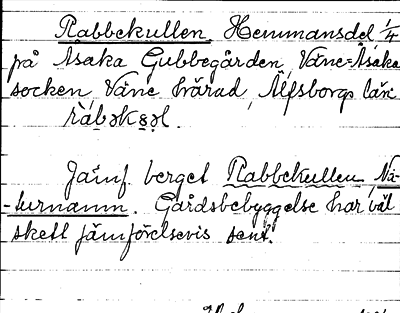 Rabbekullen Hemmansdel 1/4
på Åsaka Gubbegården, Väne-Åsaka
socken Väne härad, Älfsborgs län

Jämf. berget Rabbekullen, Na-
-turnamn. Gårdsbebyggelse har väl
skett jämförelsevis sent.